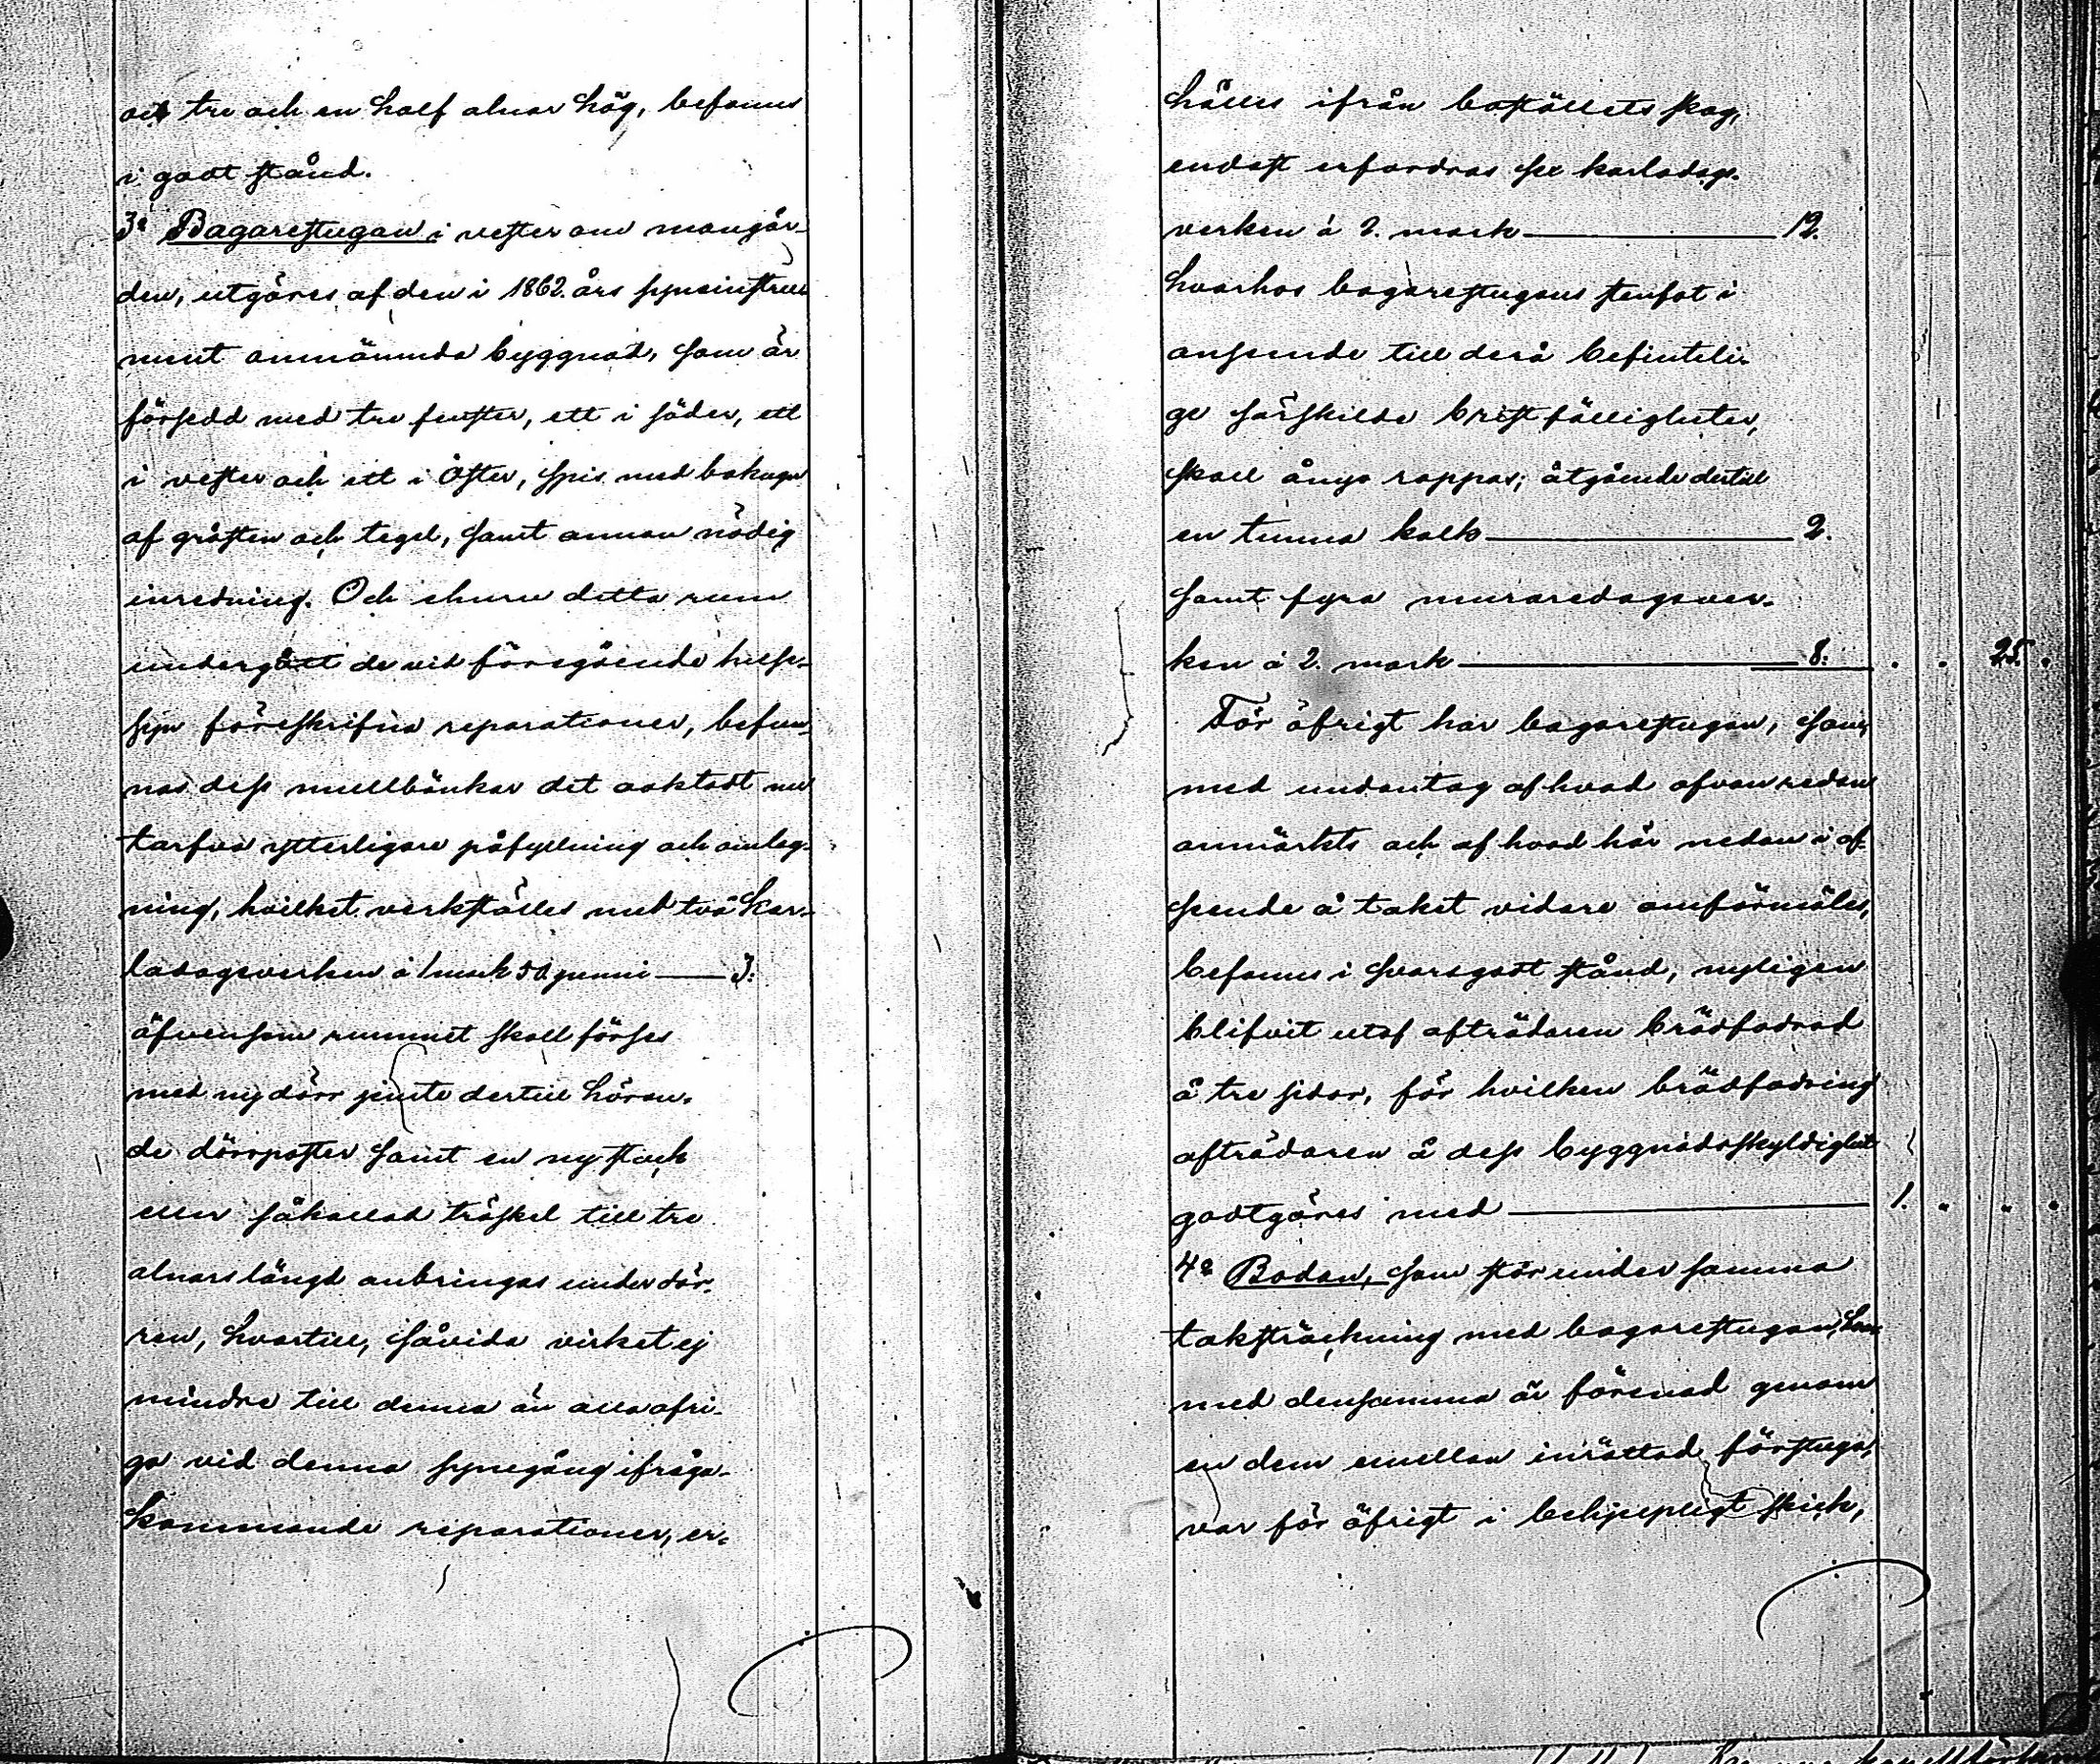 och tre och en half alnar hög, befanns
i godt stånd.
3o Bagarestugan i vester om mangår-
den, utgöres af den i 1862. års synsinstru-
ment omnämnda byggnad, som är
försedd med tre fenster, ett i söder, ett
i vester och ett i öster, spis med bakugn
af gråsten och tegel, samt annan nödig
inredning. Och ehuru detta rum
undergått de vid föregående huse-
syn föreskrifna reparationer, befun-
nos dess mullbänkar det oaktadt nu
tarfva ytterligare påfyllning och omlag-
ning, hvilket verkställes med två kar-
ladagsverken á 1 mark 50 penni — 3.
äfvensom rummet skall förses
med ny dörr jemte dertill höran-
de dörrposter samt en ny stock
eller såkallad tröskel till tre
alnars längd anbringas under dör-
ren, hvartill, såvida virket ej
mindre till denna än alla öfri-
ga vid denna synegång ifråga-
kommande reparationer, er-
hålles ifrån boställets skog,
endast erfordras sex karladags-
verken á 2. mark — 12.
hvarhos bagarestugans stenfot i
anseende till derå befintli-
ga särskilda bristfälligheter,
skall ånyo rappas; åtgående dertill
en tunna kalk — 2.
samt fyra muraredagsver-
ken á 2. mark — 8. . . 25. .
För öfrigt har bagarestugan, som,
med undantag af hvad ofvan redan
anmärkts och af hvad här nedan i af-
seende å taket vidare omförmäles,
befanns i svarsgodt stånd, nyligen
blifvit utaf afträdaren brädfodrad
å tre sidor, för hvilken brädfodring
afträdaren å dess byggnadsskyldighet
godtgöres med — 1. . . .
4o Bodan, som står under samma
taksträckning med bagarestugan, som
med densamma är förenad genom
en dem emellan inrättad förstuga,
var för öfrigt i behjelpligt skick,